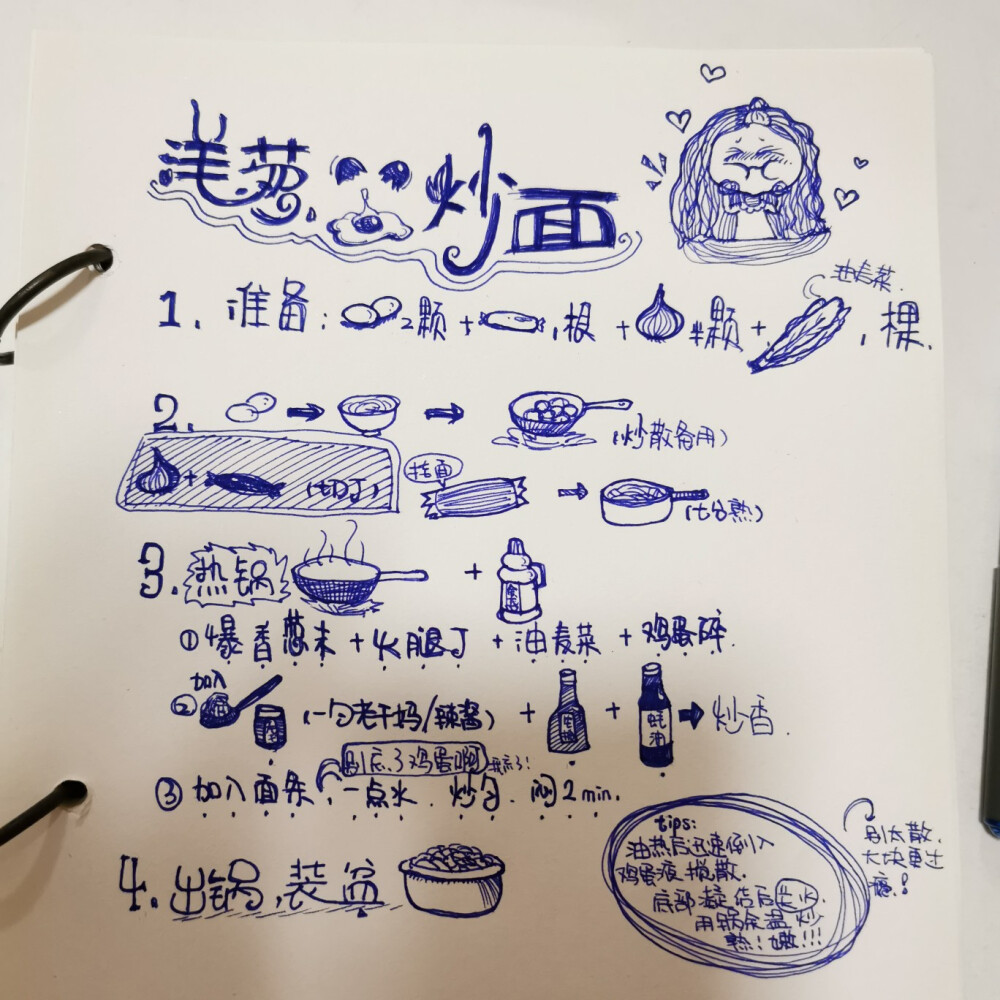 洋葱炒面
油麦菜.
1. 准备: 2颗 + 1根 + 半颗 + 1棵.
2.
(炒散备用)
+ (切丁) 挂面 (七分熟)
3. 热锅 +
①爆香葱末 + 火腿丁 + 油麦菜 + 鸡蛋碎.
② 加入 (一勺老干妈/辣酱) + + 蚝油 炒香.
别忘了鸡蛋啊 我忘了!
③ 加入面条, 一点水. 炒匀. 焖2min.
4. 出锅, 装盆
tips:
油热后迅速倒入
鸡蛋液搅散.
底部凝结后关火.
用锅余温炒
熟! 嫩!!!
别太散.
大块更过
瘾!